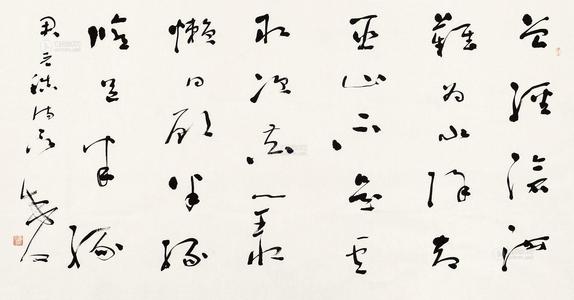 曾經滄海
難為水除却
巫山不是雲
取次花叢
懶回顧半緣
修道半緣
君元稹詩